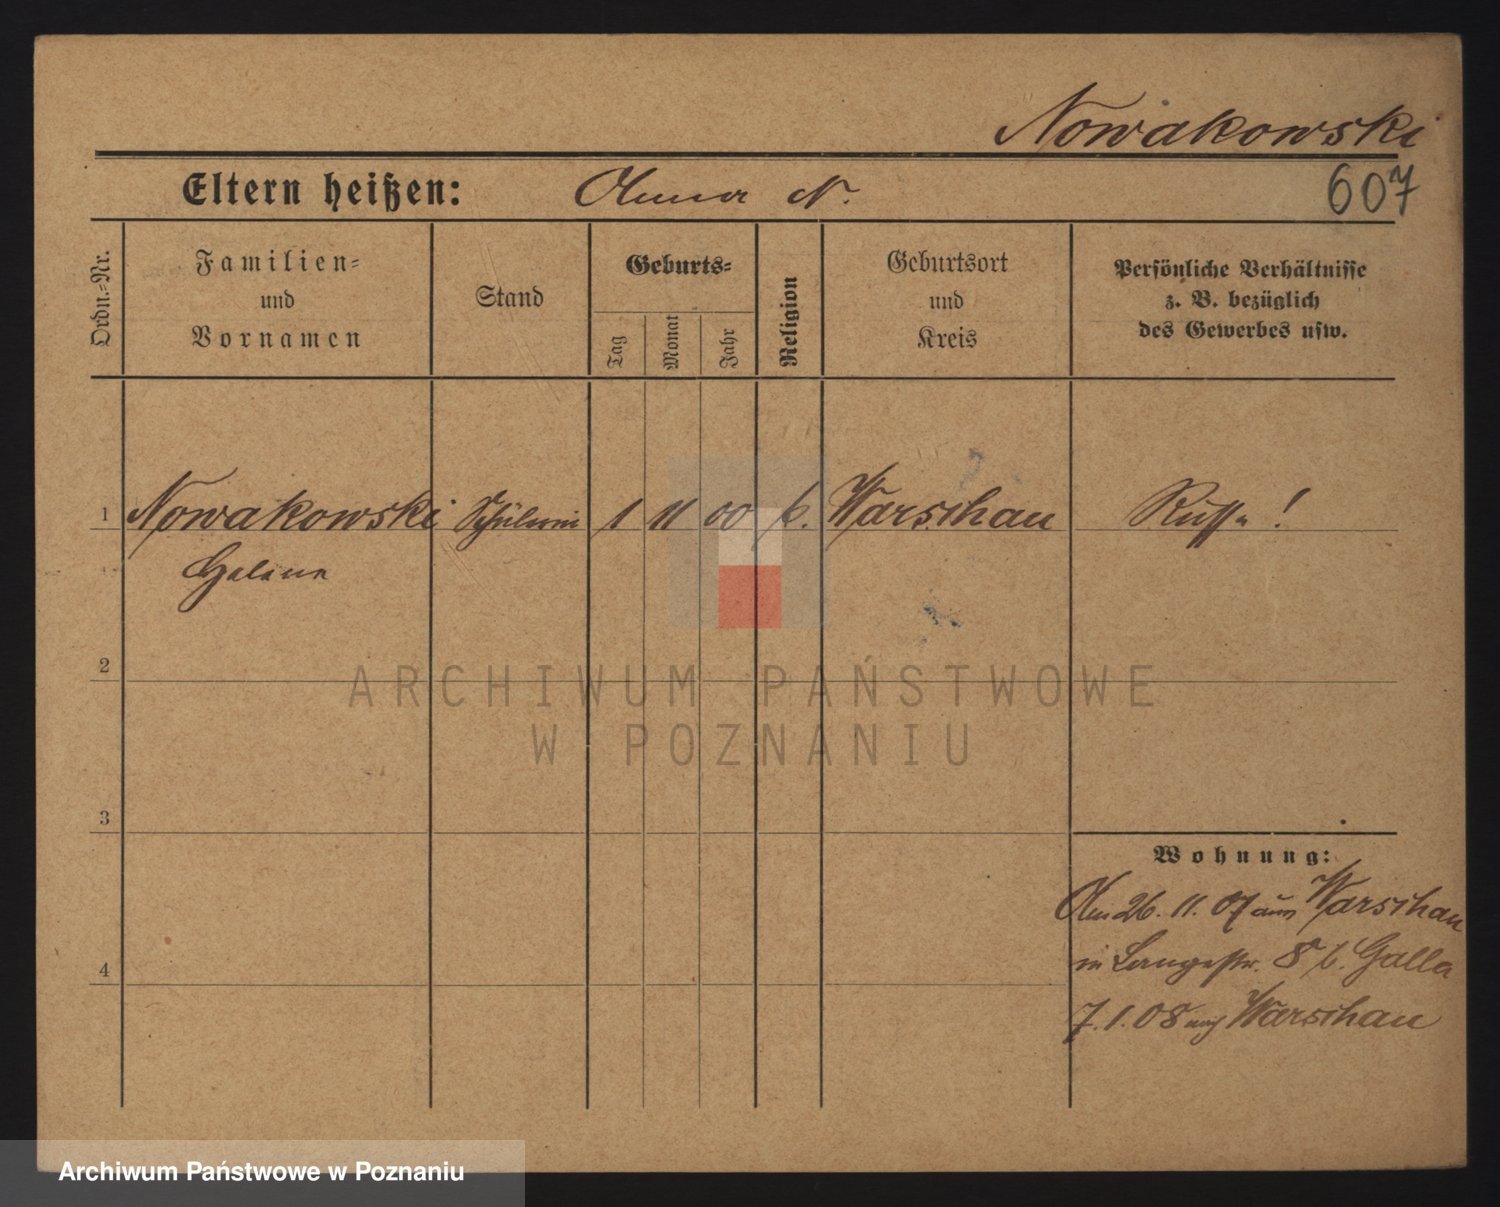 Nowakowski
Eltern heißen: Anna N.
607
Ordn.-Nr.
Familien- und Vornamen
Stand
Geburts-
Tag
Monat
Jahr
Religion
Geburtsort und Kreis
Persönliche Verhältnisse
z. B. bezüglich
des Gewerbes usw.
1 Nowakowski Schülerin 1 11 00 k. Warschau Russe !
2
ARCHIWUM PAŃSTWOWE
W POZNANIU
3
Wohnung:
Am 26. 11. 07 aus Warschau
in Langestr. 8 b. Galla
4
7. 1. 08 nach Warschau
Archiwum Państwowe w Poznaniu